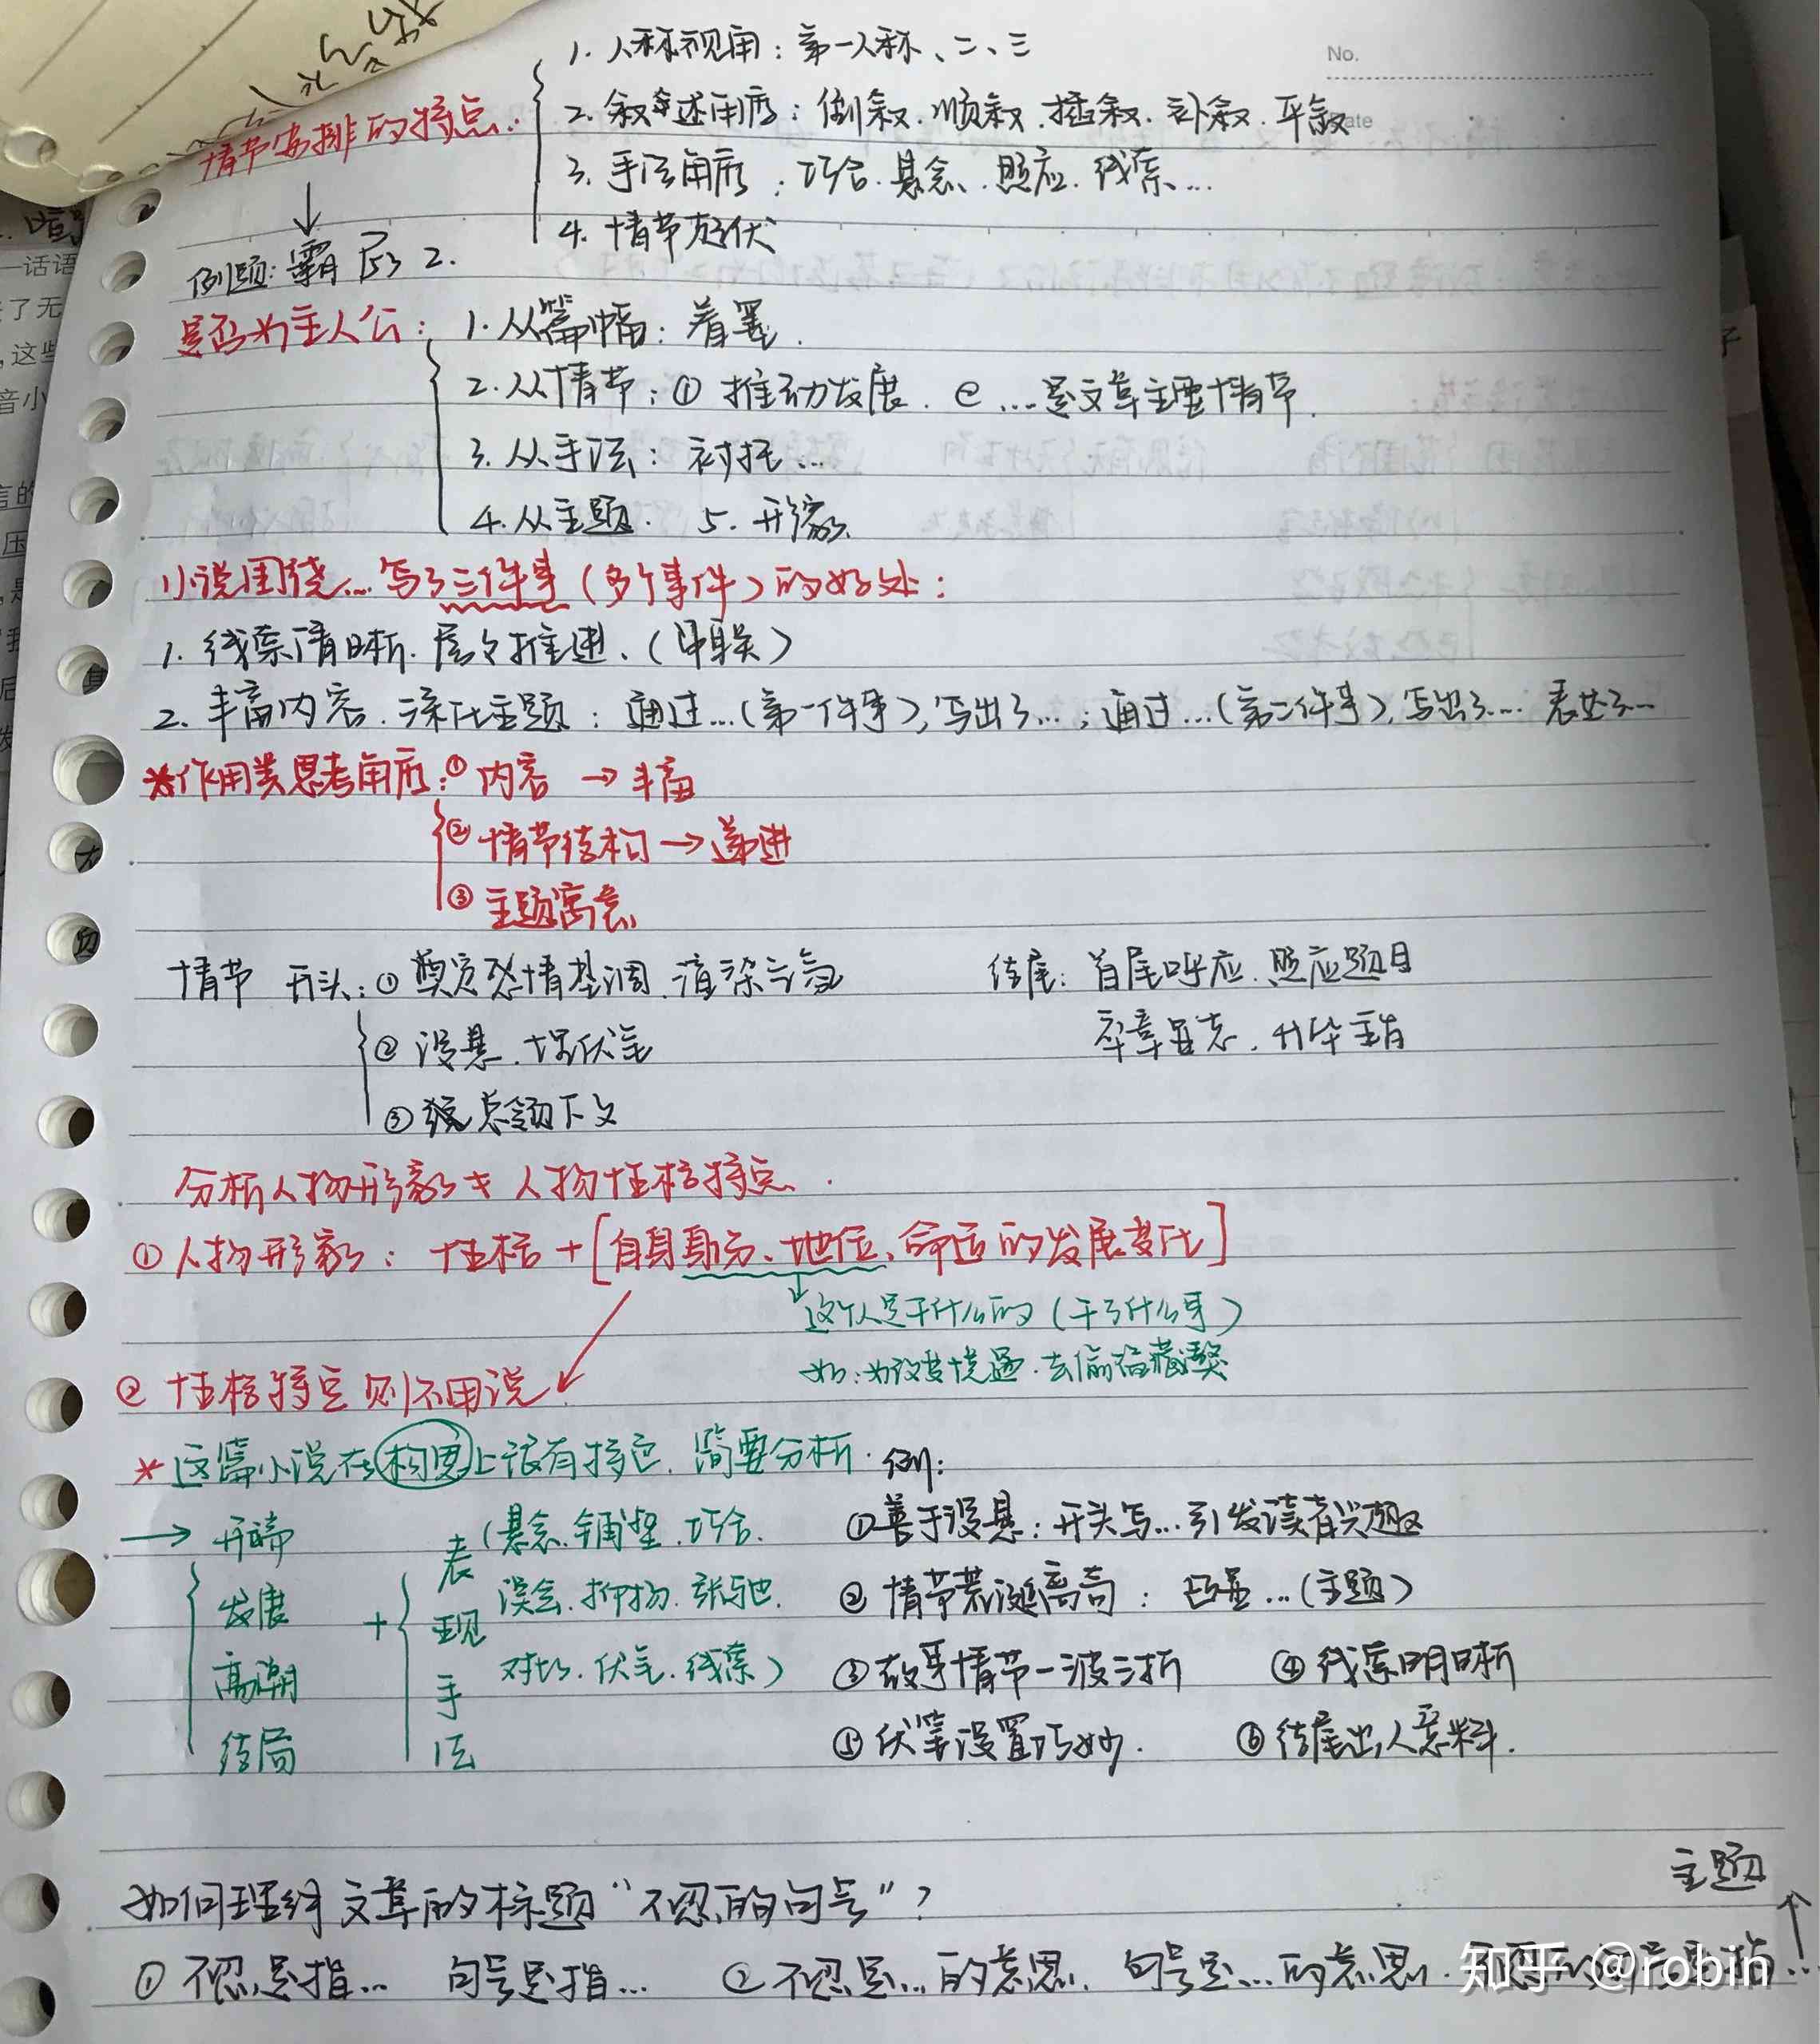 No.
1. 人称视角：第一人称、二、三
情节安排的特点：
2. 叙述角度：倒叙.顺叙.插叙.补叙.平叙
3. 手法角度：巧合.悬念.照应.线索...
4. 情节起伏
例题：霸 2.
是否为主人公：1. 从篇幅：着墨.
2. 从情节：① 推动发展. ② ...是文章主要情节.
3. 从手法：衬托...
4. 从主题. 5. 形象.
小说围绕...写了三件事（多个事件）的好处：
1. 线索清晰.层层推进.（串联）
2. 丰富内容.深化主题：通过...（第一件事），写出了...；通过...（第二件事），写出了... 表达了...
*作用类思考角度：① 内容 → 丰富
② 情节结构 → 递进
③ 主题寓意
情节 开头：① 奠定感情基调.渲染气氛
结尾：首尾呼应.照应题目
② 设悬.埋伏笔
卒章显志.升华主旨
③ 总领下文
分析人物形象与人物性格特点.
① 人物形象：性格＋[自身身份、地位、命运的发展变化]
这个人是干什么的（干了什么事）
如：为改变境遇.去偷猎藏獒
② 性格特点则不用说
*这篇小说在构思上很有特色.简要分析. 例：
→ 开端
发展
高潮
结局
＋ 表现手法
（悬念.铺垫.巧合.
误会.抑扬.张弛.
对比.伏笔.线索）
①善于设悬：开头写...引发读者兴趣
② 情节荒诞离奇：凸显...（主题）
③ 故事情节一波三折 ④ 线索明晰
⑤ 伏笔设置巧妙. ⑥ 结尾出人意料.
主题
如何理解文章的标题“不忍的句号”？
① 不忍是指... 句号是指... ② 不忍是...的意思.句号是...的意思.
知乎 @robin